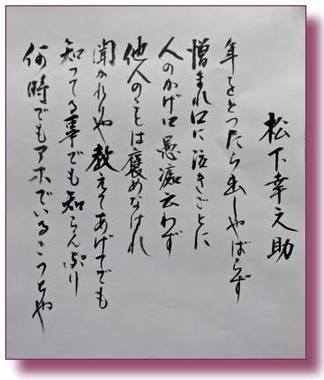 松下幸之助
年をとったら出しゃばらず
憎まれ口に泣きごとに
人のかげ口愚痴云わず
他人のことは褒めなけれ
聞かれりゃ教えてあげてでも
知ってる事でも知らんぷり
何時でもアホでいるこっちゃ